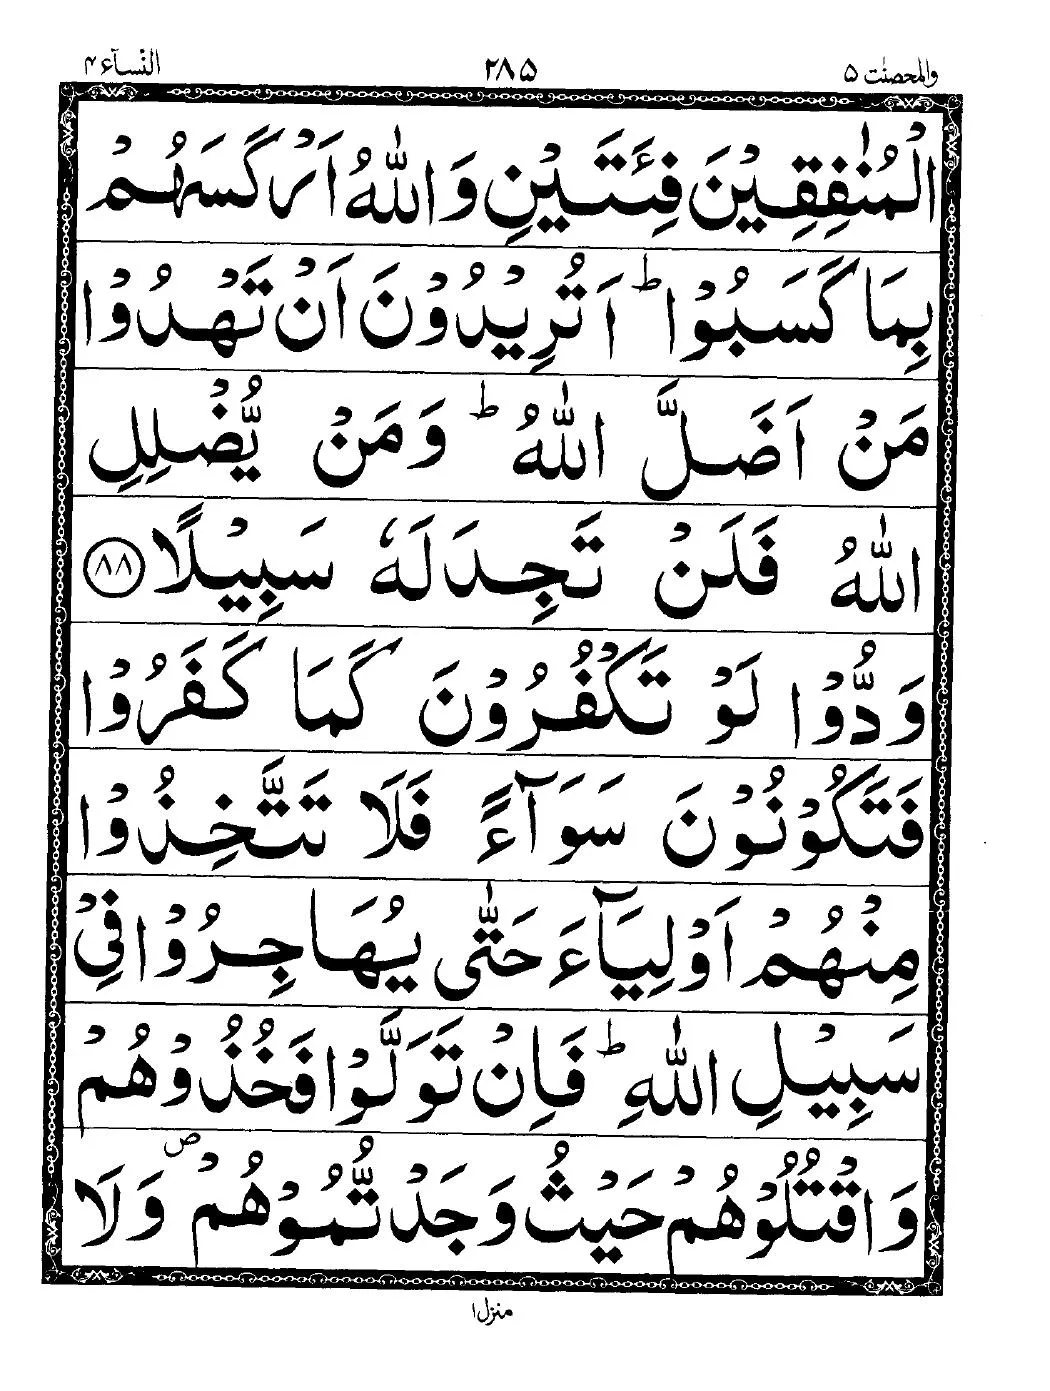 والمحصنٰت ۵ ۲۸۵ النسآء ۴
الْمُنٰفِقِيْنَ فِئَتَيْنِ وَاللّٰهُ اَرْكَسَهُمْ
بِمَا كَسَبُوْا ؕ اَتُرِيْدُوْنَ اَنْ تَهْدُوْا
مَنْ اَضَلَّ اللّٰهُ ؕ وَمَنْ يُّضْلِلِ
اللّٰهُ فَلَنْ تَجِدَ لَهٗ سَبِيْلًا ﴿۸۸﴾
وَدُّوْا لَوْ تَكْفُرُوْنَ كَمَا كَفَرُوْا
فَتَكُوْنُوْنَ سَوَآءً فَلَا تَتَّخِذُوْا
مِنْهُمْ اَوْلِيَآءَ حَتّٰى يُهَاجِرُوْا فِيْ
سَبِيْلِ اللّٰهِ ؕ فَاِنْ تَوَلَّوْا فَخُذُوْهُمْ
وَاقْتُلُوْهُمْ حَيْثُ وَجَدْتُّمُوْهُمْ ۪ وَلَا
منزل ۱